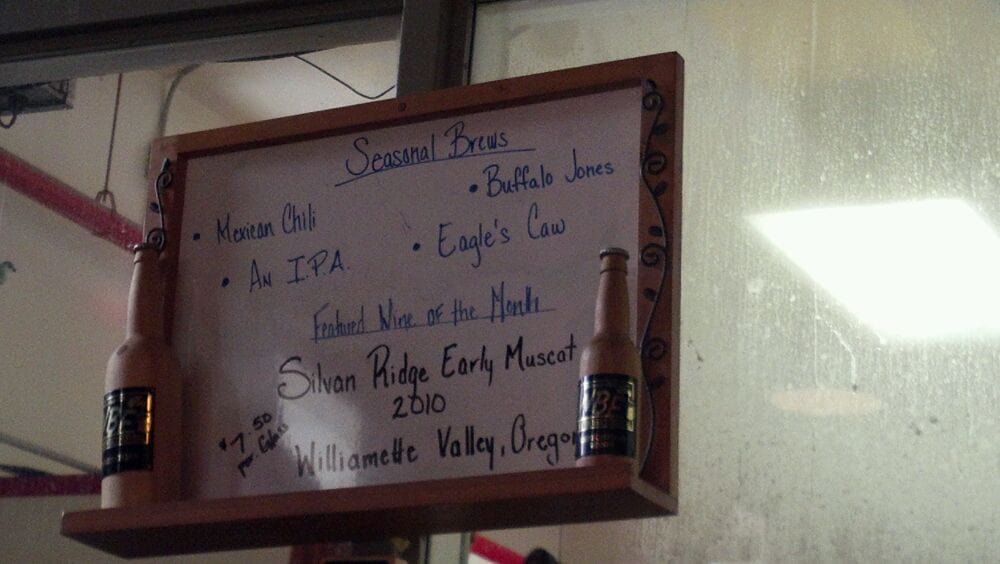 Seasonal Brews
• Buffalo Jones
• Mexican Chili
• Eagle's Caw
• An I.P.A.
Featured Wine of the Month
Silvan Ridge Early Muscat
2010
$7.50
per Glass
Williamette Valley, Oregon